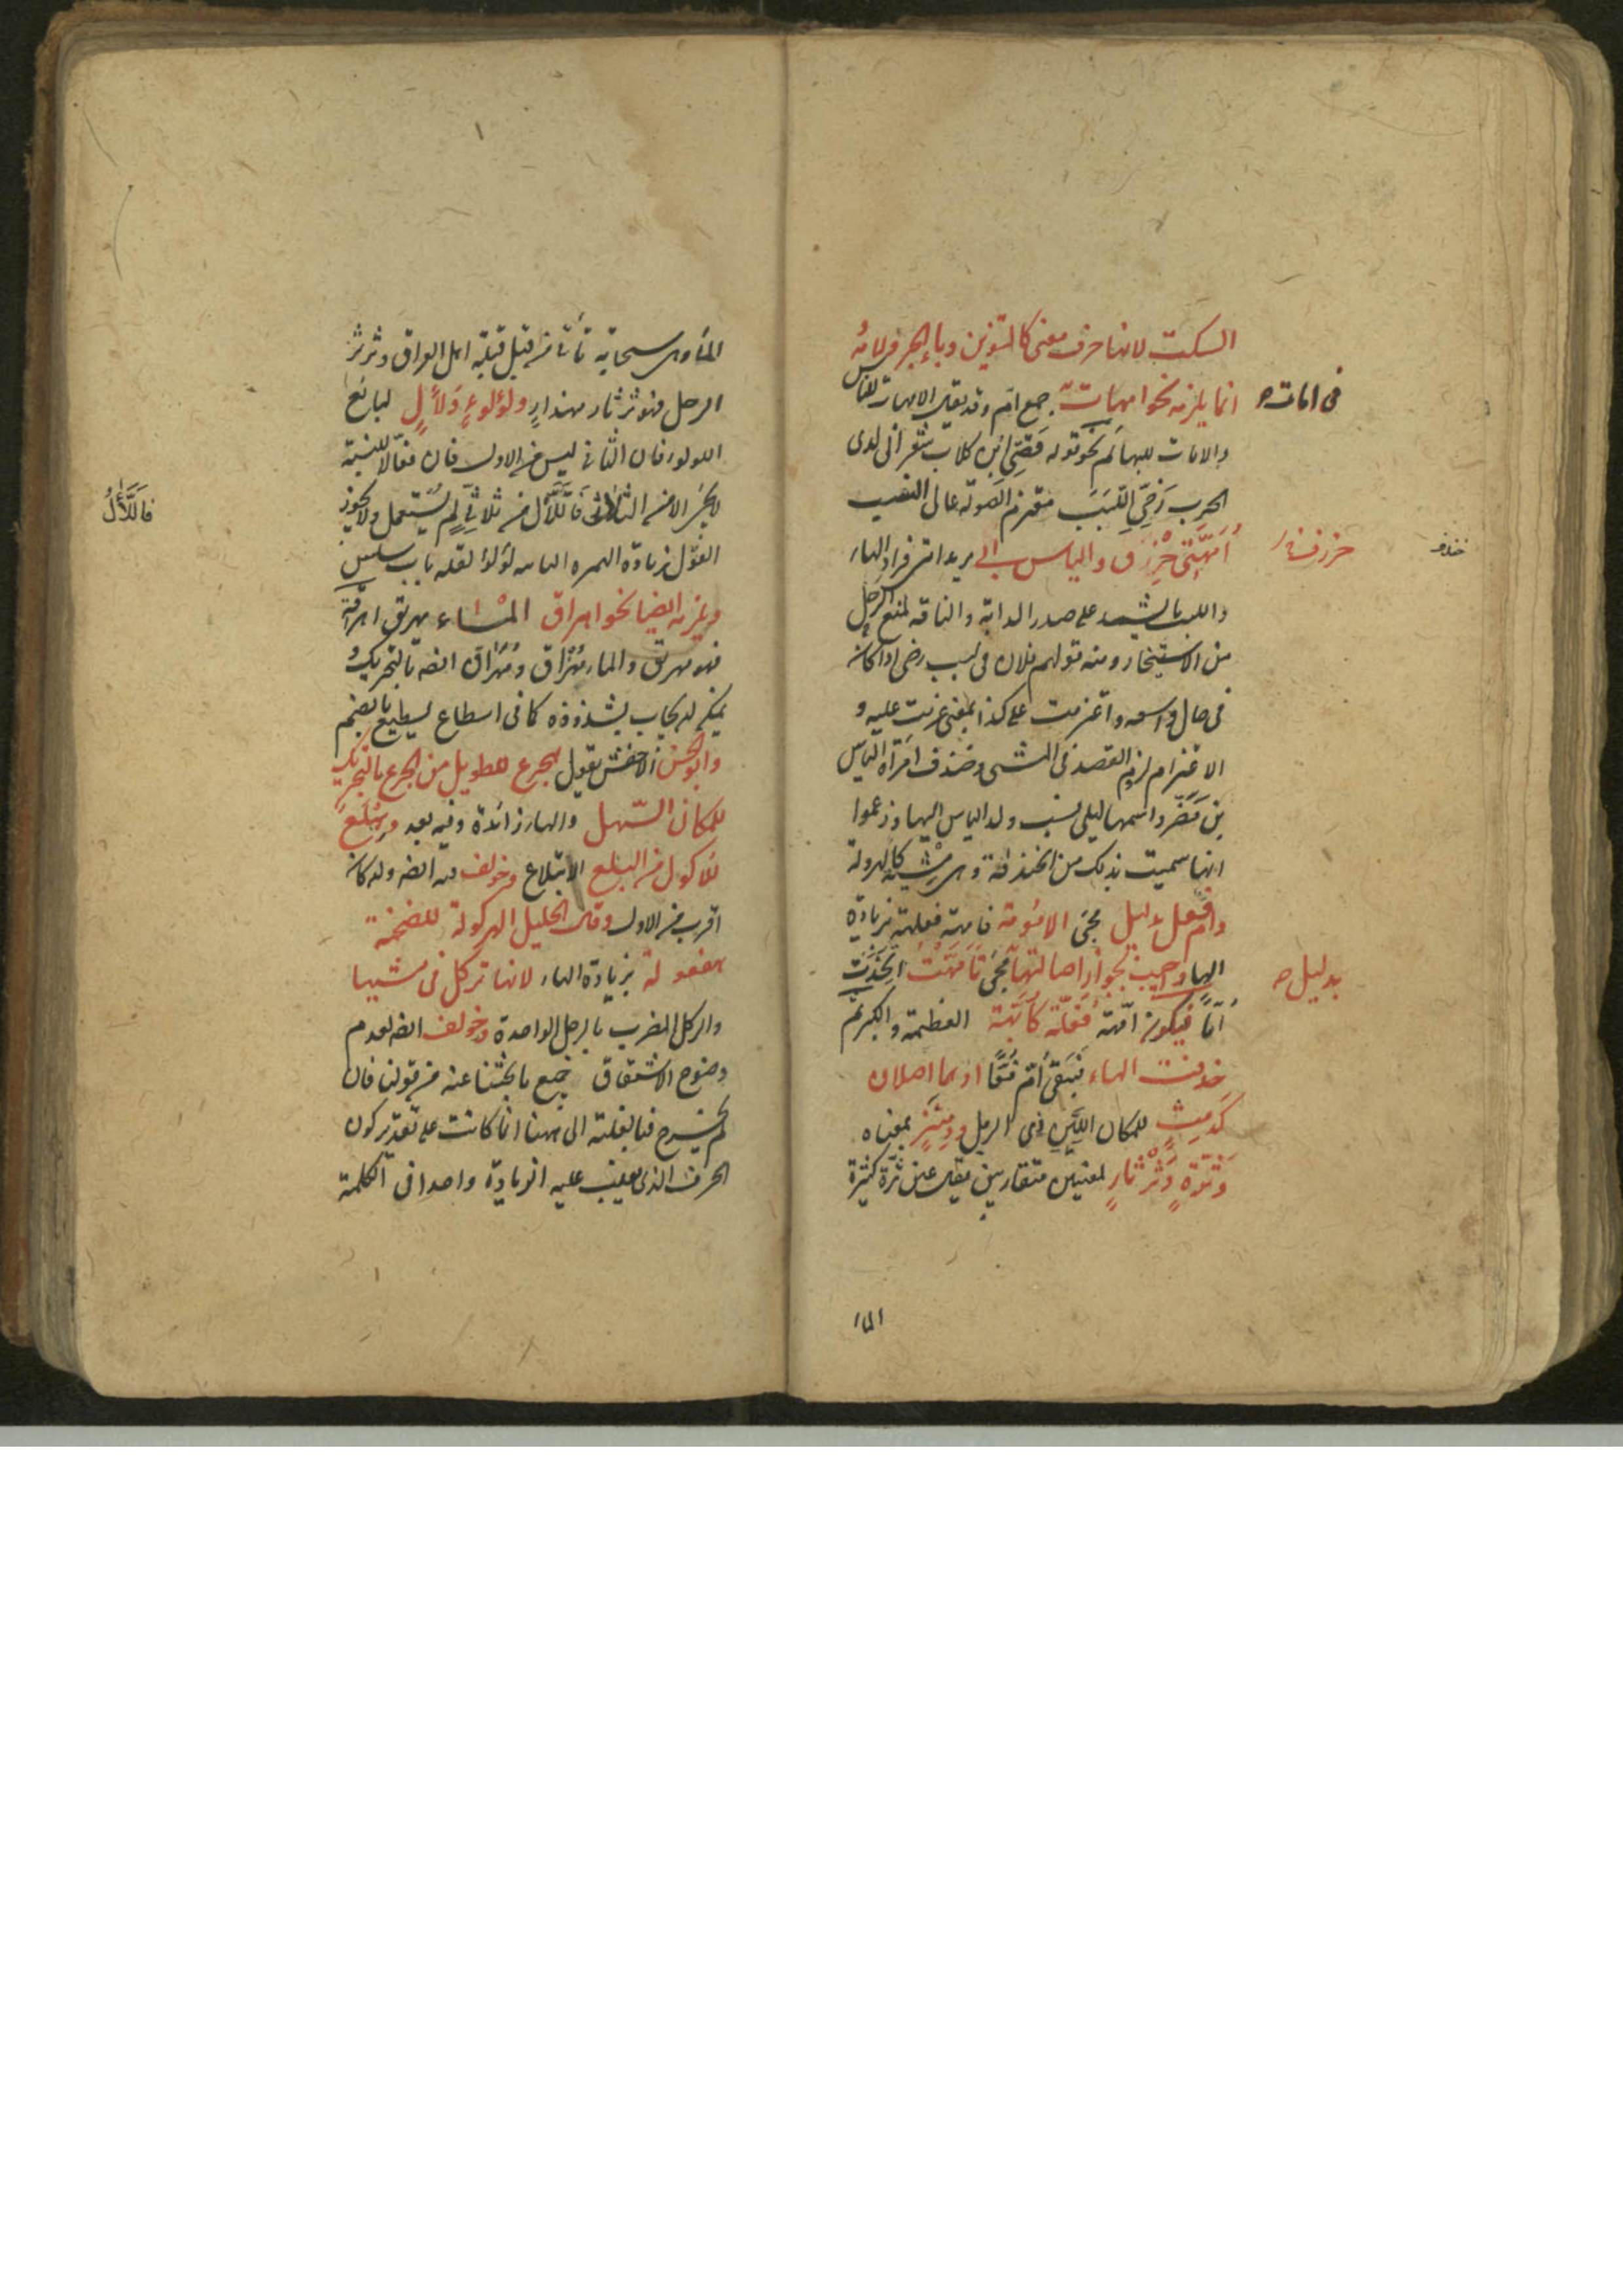 السكت لانها حرف معنى كالتنوين وباء الجر ولامه
انما يلزمه نحو امهات جمع ام وقد يقال الامهات للناس
فى امات
والامات للبهائم نحو قوله قصى ابن كلاب شعر انى لدى
الحرب رخى اللبب معتزم الصولة عالى النسب
امهتى خندف والياس ابى يريد امى فزاد الهاء
واللبب ما يشد على صدر الدابة والناقة لمنع الرحل
من الاستيخار ومنه قولهم فلان فى لبب رخى اذا كان
فى حال واسعه واعتزمت على كذا بمعنى عزمت عليه و
الاعتزام لزوم القصد فى المشى وخندف امراة الياس
بن مضر واسمها ليلى نسب ولد الياس اليها وزعموا
انها سميت بذلك من الخندفة وهى مشية كالهرولة
وام فعل بدليل مجئ الامومة فامهة فعلهة بزيادة
الهاء واجيب بجواز اصالتها مجئ تأمهت اتخذت
بدليل
اما فيكون امهة فعلة كابهة العظمة والكبر ثم
حذفت الهاء فبقى ام فعا او هما اصلان
كدمث للمكان اللين ذى الرمل ودمثر بمعناه
وثرة وثرثار لمعنيين متقاربين يقال عين ثرة كثيرة
الماء
الماء وهى سحابة تأتى من قبل قبلة اهل العراق وثرثر
الرجل فهو ثرثار مهذار ولؤلوء ولأل لبائع
اللولور فان الثانى ليس من الاول فان فعالا للنسبة
لا يجئ الا من الثلاثى فاللأل من ثلاثى لم يستعمل ولا يجوز
فاللأل
القول بزيادة الهمزه الثانيه لؤلؤ لقله باب سلس
ويلزمه ايضا نحو اهراق الماء يهريق اهراقة
فهو مهريق والماء مهراق ومهراق ايضه بالتحريك و
يمكن ان يجاب بشذوذه كما فى اسطاع يسطيع بالضم
وابو الحسن الاخفش يقول هجرع للطويل من الجرع بالتحريك
للمكان السهل والهاء زائدة وفيه بعد وهبلع
للاكول من البلع الابتلاع وخولف فيه ايضه وان كان
اقرب من الاول وقال الخليل الهركولة للضخمة
هفعولة بزيادة الهاء لانها تركل فى مشيها
والركل الضرب بالرجل الواحدة وخولف ايضه لعدم
وضوح الاشتقاق جميع ما بحثنا عنه من قولنا فان
لم يخرج فبالغلبة الى ههنا انما كانت على تقدير كون
الحرف الذى يغلب عليه الزيادة واحدا فى الكلمة